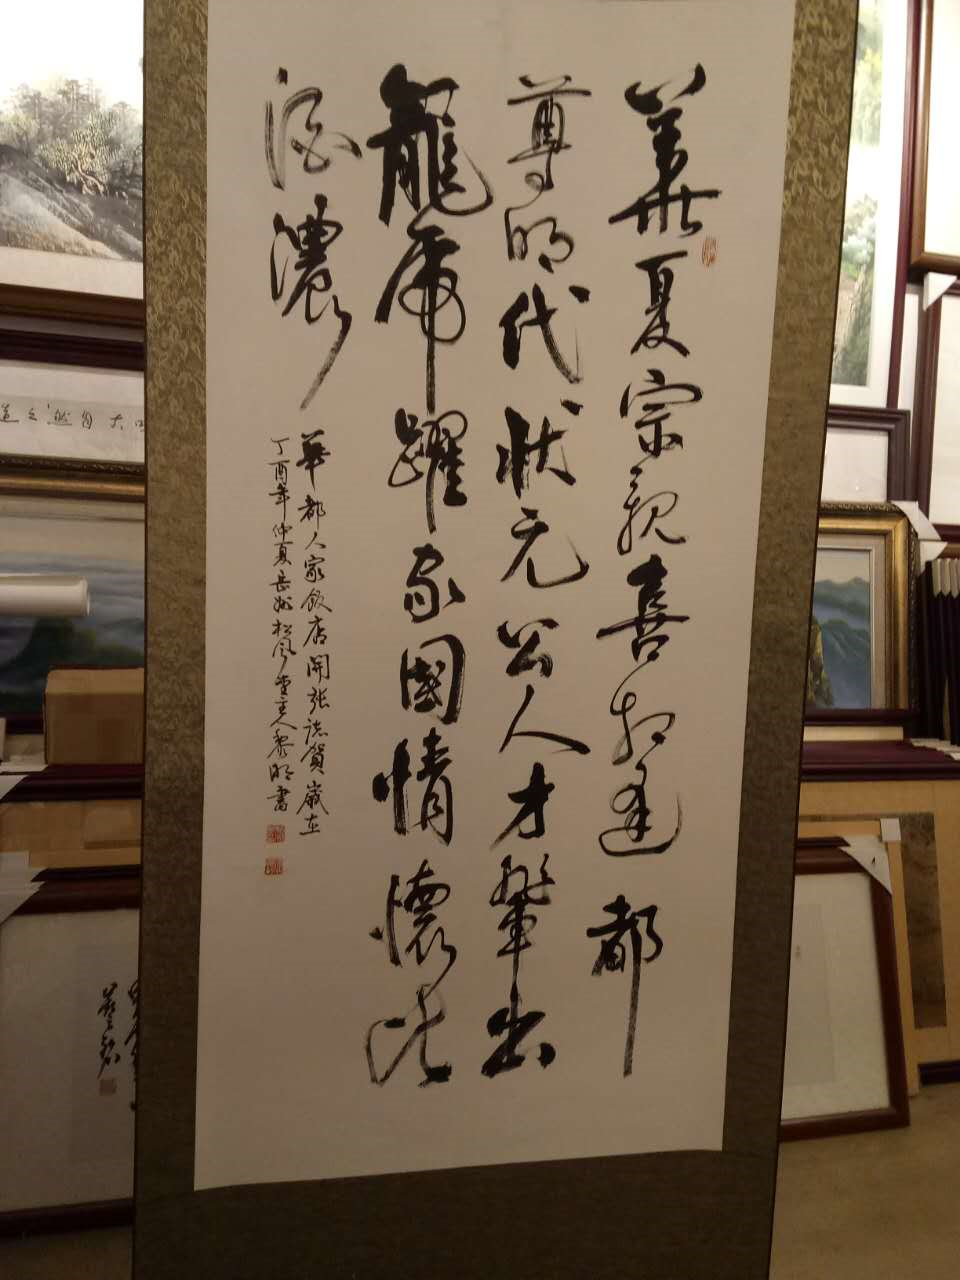 華夏宗親喜相逢都
尊明代狀元公人才輩出
龍虎躍家國情懷比
酒濃
華都人家飯店開張誌賀歲在
丁酉年仲夏岳州松風堂主人黎明書